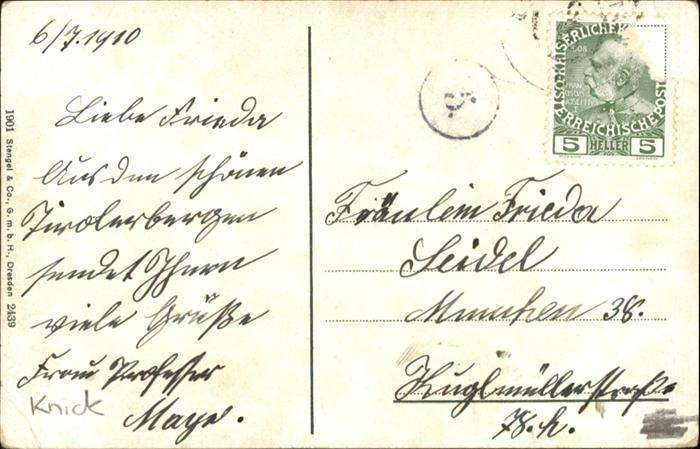 6/7.1910
Liebe Frieda
Aus den schönen
Tirolerbergen
sendet Ihnen
viele Grüße
Frau Professer
Maye.
Knick
1901 Stengel & Co., G. m. b. H., Dresden 2439
KAISERLICHE
ÖSTERREICHISCHE POST
5 HELLER 5
Fräulein Frieda
Seidel
München 38.
Kuglmüllerstraße